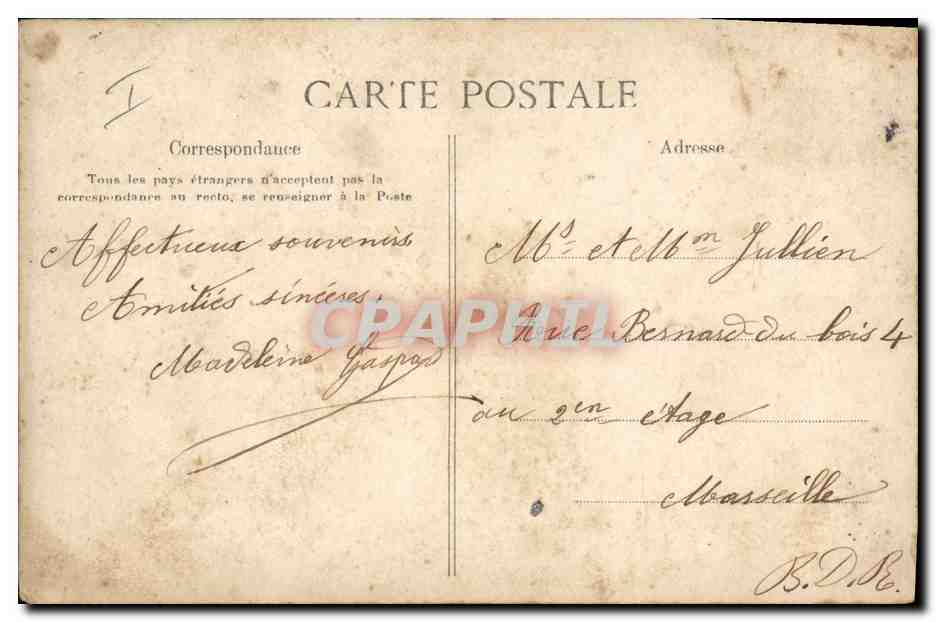 I
CARTE POSTALE
Correspondance
Tous les pays étrangers n'acceptent pas la
correspondance au recto, se renseigner à la Poste
Affectueux souvenirs
Amitiés sincères.
Madeleine Gaspard
Adresse
Ms et Mon Jullien
Rue Bernard-du bois 4
au 2en étage
Marseille
B.D.R.
CPAPHIL